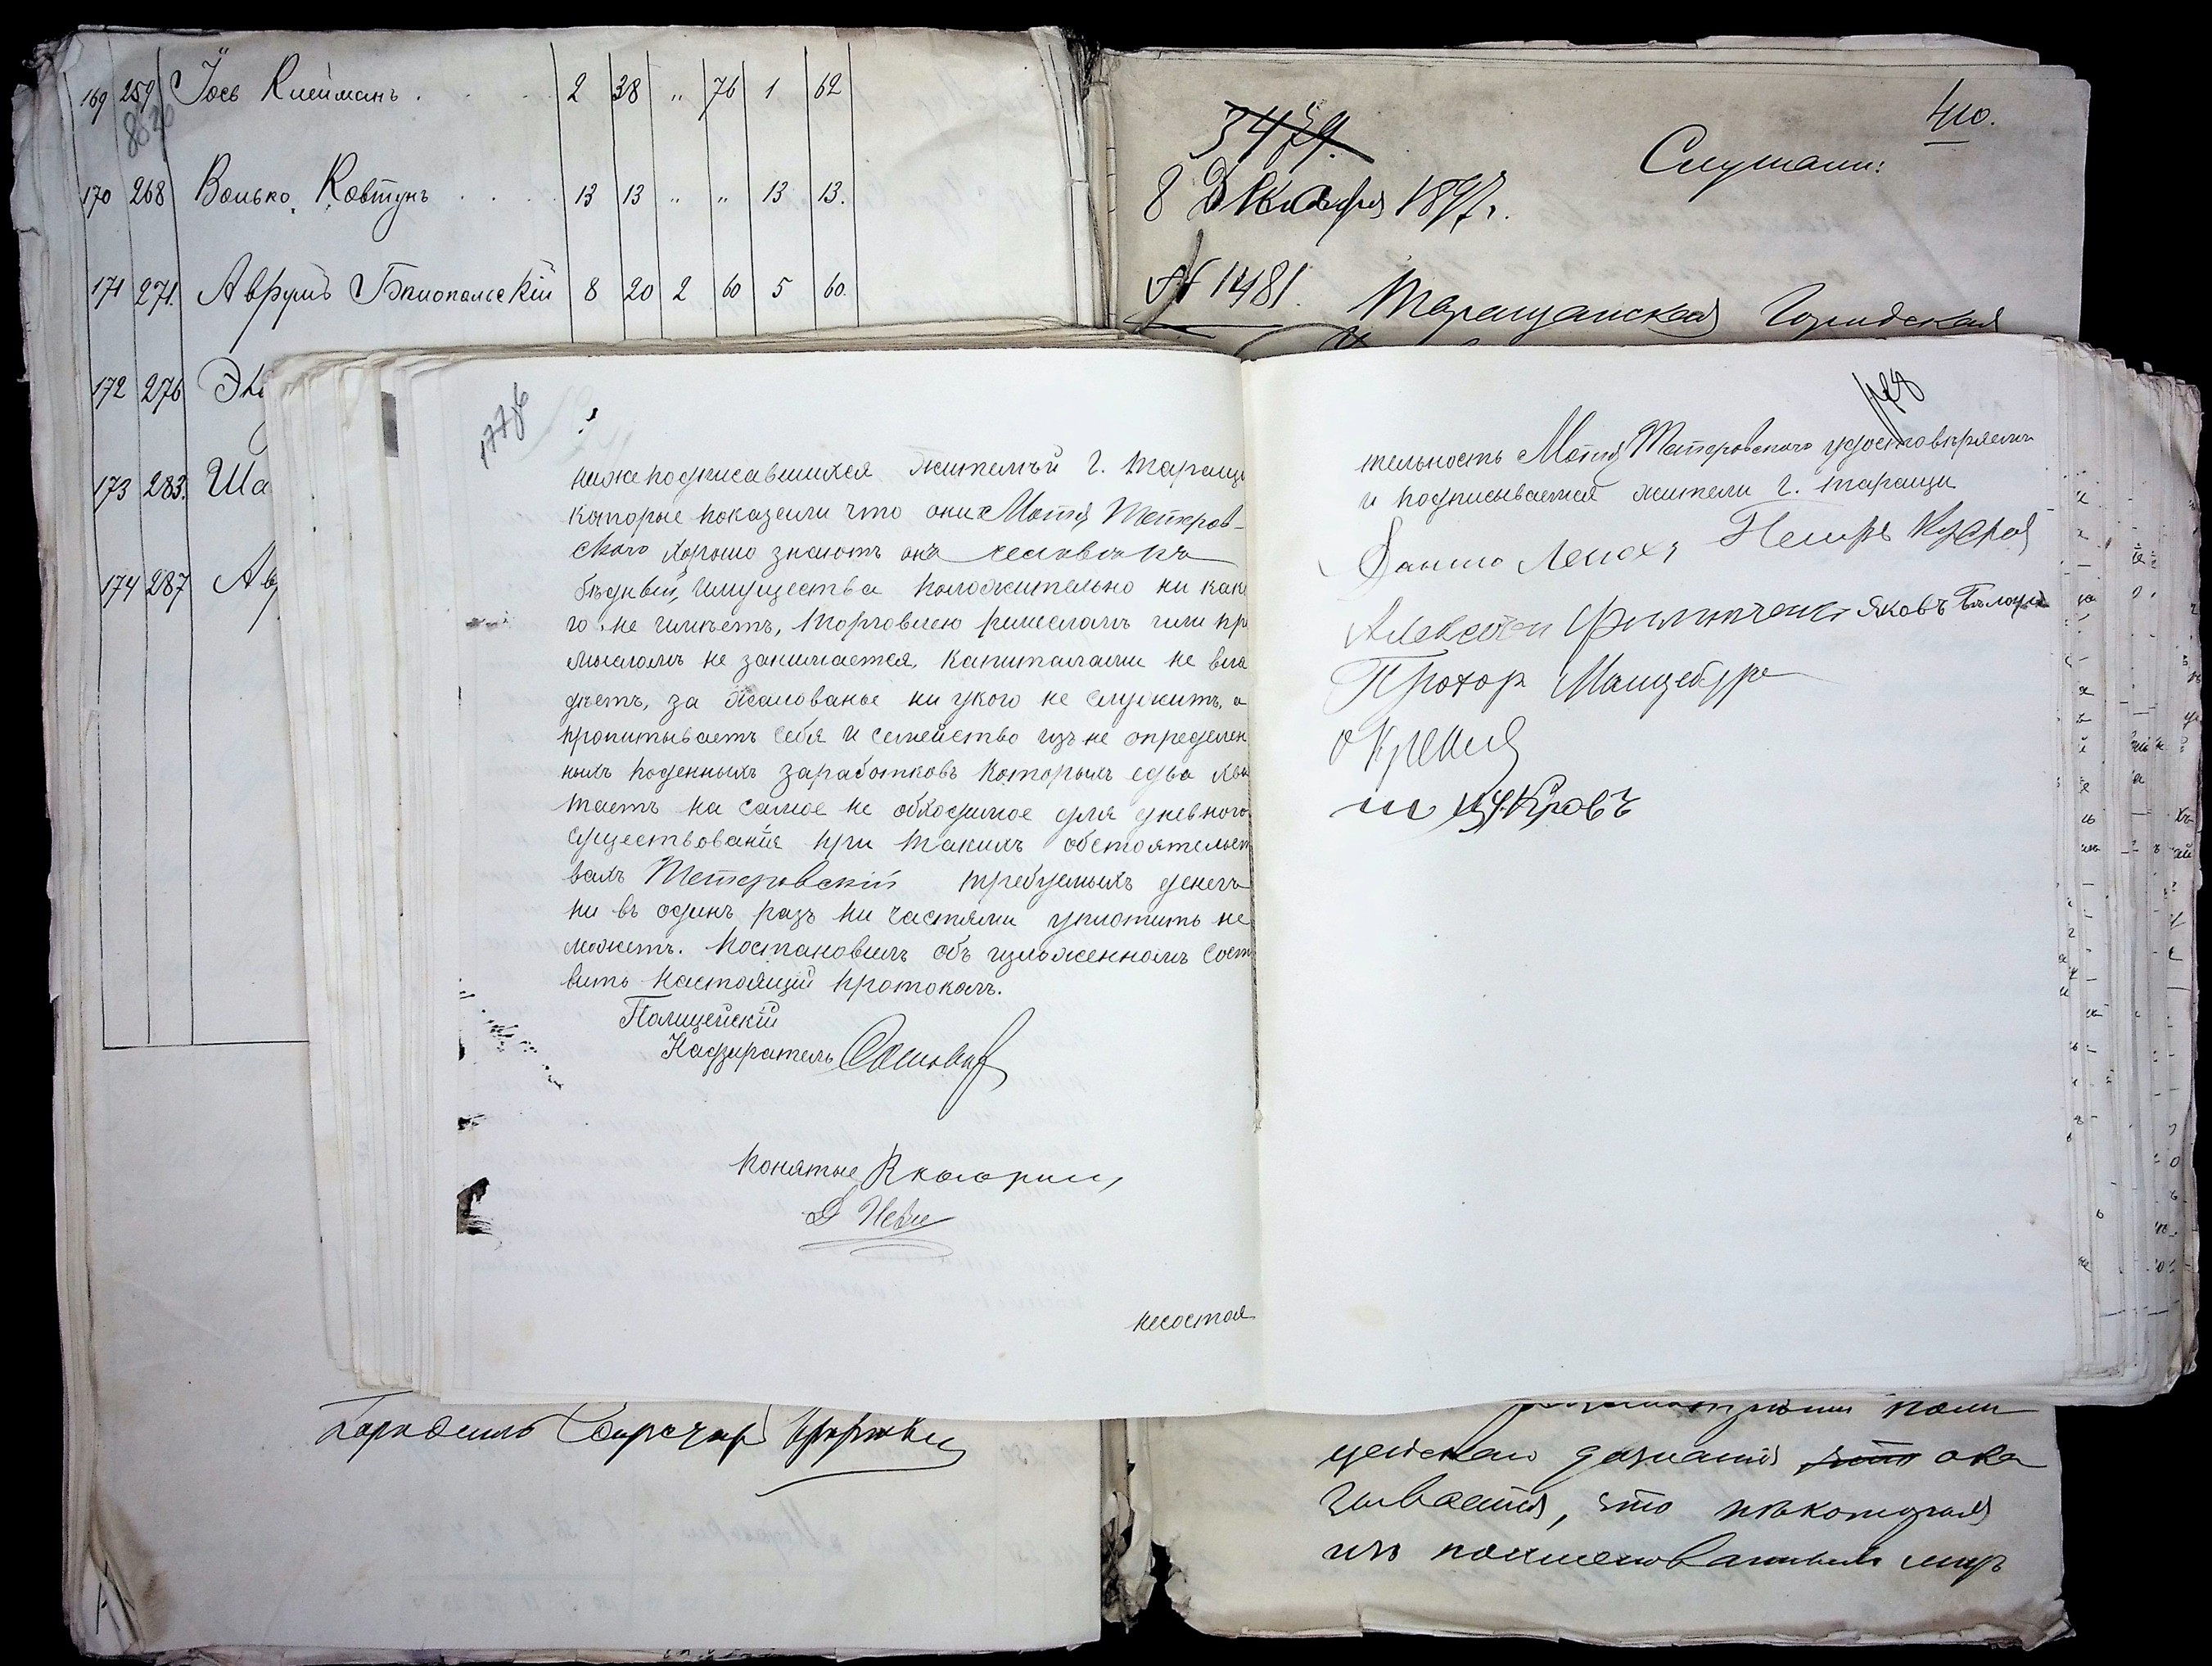 169 259 Іось Клейманъ . . . 2 38 " 76 1 62
170 268 Волько Ковтунъ . . . 13 13 " " 13 13.
171 271. Аврумъ Бялопольскій 8 20 2 60 5 60.
172 276
173 283. Ша
174 287 Ав
410.
3479.
Слушали:
8 Декабря 1897 г.
№ 1481.
Таращанская Городская
177
нижеподписавшихся жителѣй г. Таращи
которые показали что они Мотя Тетеров-
скаго хорошо знаютъ онъ человѣкъ
бѣдный, имущества положительно ни како
го не имѣетъ, торговлею ремесломъ или пр
мысломъ не занимается, капиталами не вла
дѣетъ, за жалованье ни укого не служитъ, а
пропитываетъ себя и семейство изъ не определен
ныхъ поденныхъ заработковъ которыхъ едва хва
таетъ на самое не обходимое для дневного
существованія при такихъ обстоятельст
вахъ Тетеровскій требуемыхъ денегъ
ни въ одинъ разъ ни частями уплотить не
можетъ. Постановилъ объ изложенномъ соста
вить настоящій протоколъ.
Полицейскій
Надзиратель
Понятые
несостоя
тельность Мотя Тетеровскаго удостовѣряемъ
и подписываемся жители г. Таращи
Петръ
Алексей Яковъ
Прохор
цейскаго дознанія ока
зывается, что нѣкоторыя
изъ поименованныхъ лицъ